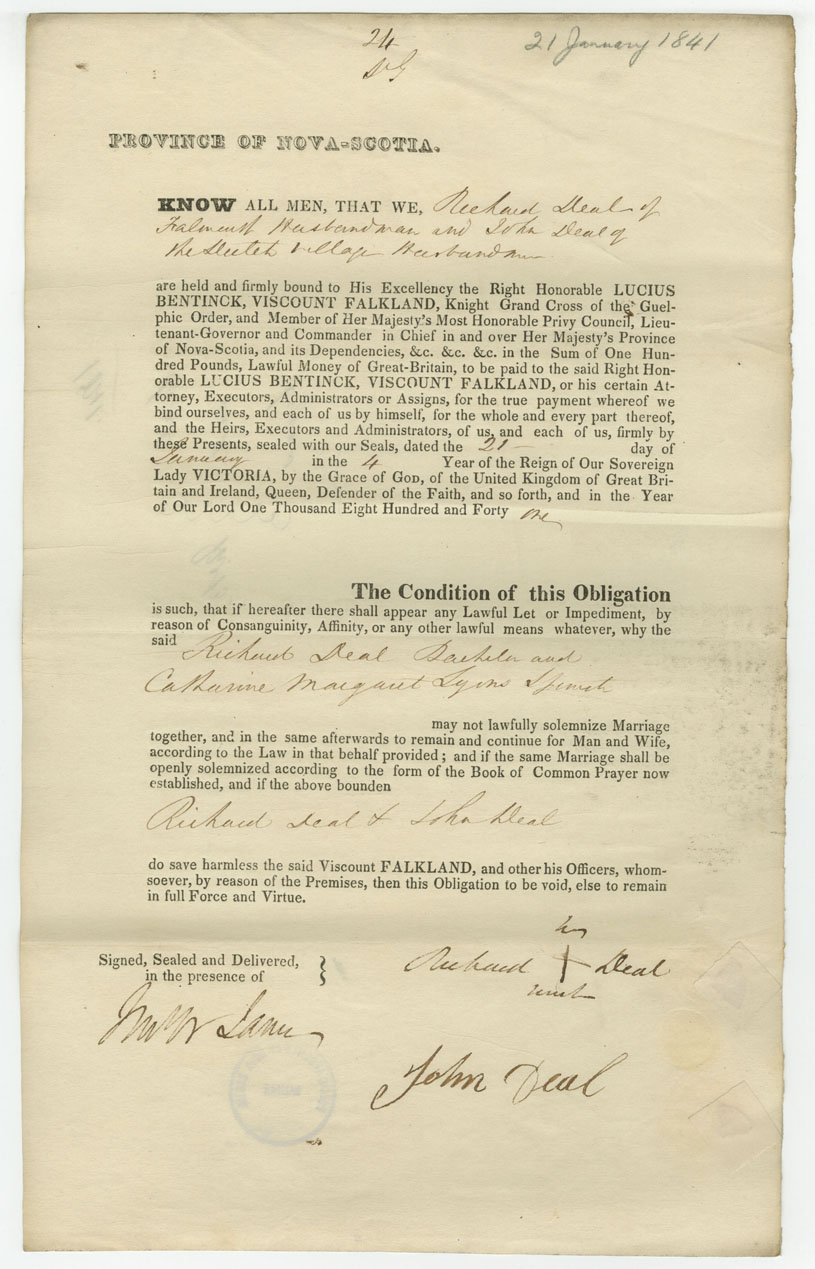 24
21 January 1841
PROVINCE OF NOVA-SCOTIA.
KNOW ALL MEN, THAT WE, Richard Deal of
Falmouth Husbandman and John Deal of
the Dutch Village Husbandman
are held and firmly bound to His Excellency the Right Honorable LUCIUS
BENTINCK, VISCOUNT FALKLAND, Knight Grand Cross of the Guel-
phic Order, and Member of Her Majesty's Most Honorable Privy Council, Lieu-
tenant-Governor and Commander in Chief in and over Her Majesty's Province
of Nova-Scotia, and its Dependencies, &c. &c. &c. in the Sum of One Hun-
dred Pounds, Lawful Money of Great-Britain, to be paid to the said Right Hon-
orable LUCIUS BENTINCK, VISCOUNT FALKLAND, or his certain At-
torney, Executors, Administrators or Assigns, for the true payment whereof we
bind ourselves, and each of us by himself, for the whole and every part thereof,
and the Heirs, Executors and Administrators, of us, and each of us, firmly by
these Presents, sealed with our Seals, dated the 21 day of
January in the 4 Year of the Reign of Our Sovereign
Lady VICTORIA, by the Grace of GOD, of the United Kingdom of Great Bri-
tain and Ireland, Queen, Defender of the Faith, and so forth, and in the Year
of Our Lord One Thousand Eight Hundred and Forty one
The Condition of this Obligation
is such, that if hereafter there shall appear any Lawful Let or Impediment, by
reason of Consanguinity, Affinity, or any other lawful means whatever, why the
said Richard Deal Bachelor and
Catharine Margaret Lyons Spinster
may not lawfully solemnize Marriage
together, and in the same afterwards to remain and continue for Man and Wife,
according to the Law in that behalf provided; and if the same Marriage shall be
openly solemnized according to the form of the Book of Common Prayer now
established, and if the above bounden
Richard Deal & John Deal
do save harmless the said Viscount FALKLAND, and other his Officers, whom-
soever, by reason of the Premises, then this Obligation to be void, else to remain
in full Force and Virtue.
his
Signed, Sealed and Delivered,
in the presence of
Richard Deal
mark
John Deal